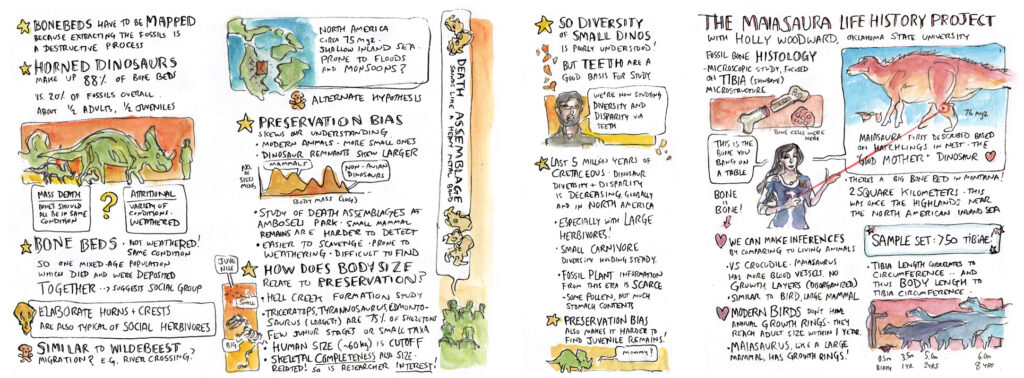 BONEBEDS HAVE TO BE MAPPED
BECAUSE EXTRACTING THE FOSSILS IS
A DESTRUCTIVE PROCESS
HORNED DINOSAURS
MAKE UP 88% OF BONE BEDS
VS. 20% OF FOSSILS OVERALL.
ABOUT ½ ADULTS, ½ JUVENILES
MASS DEATH
BONES SHOULD
ALL BE IN SAME
CONDITION
?
ATTRITIONAL
VARIETY OF
CONDITIONS.
WEATHERED
BONE BEDS · NOT WEATHERED!
SAME CONDITION
SO ONE MIXED-AGE POPULATION
WHICH DIED AND WERE DEPOSITED
TOGETHER --> SUGGESTS SOCIAL GROUP
ELABORATE HORNS + CRESTS
ARE ALSO TYPICAL OF SOCIAL HERBIVORES
SIMILAR TO WILDEBEEST
MIGRATION? E.G. RIVER CROSSING?
NORTH AMERICA
CIRCA 75 MYA.
SHALLOW INLAND SEA.
PRONE TO FLOODS
AND MONSOONS?
ALTERNATE HYPOTHESIS
PRESERVATION BIAS
SKEWS OUR UNDERSTANDING
· MODERN ANIMALS · MORE SMALL ONES
· DINOSAUR REMNANTS SKEW LARGER
MAMMALS
NON-AVIAN
DINOSAURS
NO. OF
SPECIMENS
BODY MASS (LOG)
· STUDY OF DEATH ASSEMBLAGES AT
AMBOSELI PARK · SMALL MAMMAL
REMAINS ARE HARDER TO DETECT
· EASIER TO SCAVENGE · PRONE TO
WEATHERING · DIFFICULT TO FIND
HOW DOES BODY SIZE
RELATE TO PRESERVATION?
· HELL CREEK FORMATION STUDY
· TRICERATOPS, TYRANNOSAURUS, EDMONTO-
SAURUS (LARGEST) ARE 75% OF SKELETONS
FEW JUNIOR STAGES OR SMALL TAXA
· HUMAN SIZE (~60 KG) IS CUTOFF
· SKELETAL COMPLETENESS ALSO SIZE-
RELATED! SO IS RESEARCHER INTEREST!
JUVENILE
SMALL
BIG
DEATH ASSEMBLAGE
SOUNDS LIKE A METAL BAND
SO DIVERSITY
OF SMALL DINOS
IS POORLY UNDERSTOOD!
BUT TEETH ARE A
GOOD BASIS FOR STUDY
WE'RE NOW STUDYING
DIVERSITY AND
DISPARITY VIA
TEETH
LAST 5 MILLION YEARS OF
CRETACEOUS · DINOSAUR
DIVERSITY + DISPARITY
IS DECREASING, GLOBALLY
AND IN NORTH AMERICA
· ESPECIALLY WITH LARGE
HERBIVORES!
· SMALL CARNIVORE
DIVERSITY HOLDING STEADY.
· FOSSIL PLANT INFORMATION
FROM THIS ERA IS SCARCE
· SOME POLLEN, NOT MUCH
STOMACH CONTENTS
PRESERVATION BIAS
ALSO MAKES IT HARDER TO
FIND JUVENILE REMAINS!
MOMMY?
THE MAIASAURA LIFE HISTORY PROJECT
WITH HOLLY WOODWARD, OKLAHOMA STATE UNIVERSITY
FOSSIL BONE HISTOLOGY
· MICROSCOPIC STUDY, FOCUSED
ON TIBIA (SHINBONE)
MICROSTRUCTURE
BONE CELLS WERE
HERE
THIS IS THE
BONE YOU
BANG ON
A TABLE
BONE
IS
BONE!
76 MYA
MAIASAURA FIRST DESCRIBED BASED
ON HATCHLINGS IN NEST · THE
"GOOD MOTHER" DINOSAUR
· THERE'S A BIG BONE BED IN MONTANA!
2 SQUARE KILOMETERS · THIS
WAS ONCE THE HIGHLANDS NEAR
THE NORTH AMERICAN INLAND SEA
WE CAN MAKE INFERENCES
BY COMPARING TO LIVING ANIMALS
· VS CROCODILE · MAIASAURUS
HAS MORE BLOOD VESSELS, NO
GROWTH LAYERS (DISORGANIZED)
· SIMILAR TO BIRD, LARGE MAMMAL
MODERN BIRDS DON'T HAVE
ANNUAL GROWTH RINGS · THEY
REACH ADULT SIZE WITHIN 1 YEAR.
· MAIASAURUS, LIKE A LARGE
MAMMAL, HAS GROWTH RINGS!
SAMPLE SET: >50 TIBIAE!
· TIBIA LENGTH CORRELATES TO
CIRCUMFERENCE · AND
THUS BODY LENGTH TO
TIBIA CIRCUMFERENCE.
0.5m
BIRTH
3.5m
1YR
5.0m
2YRS
6.0m
8 YRS